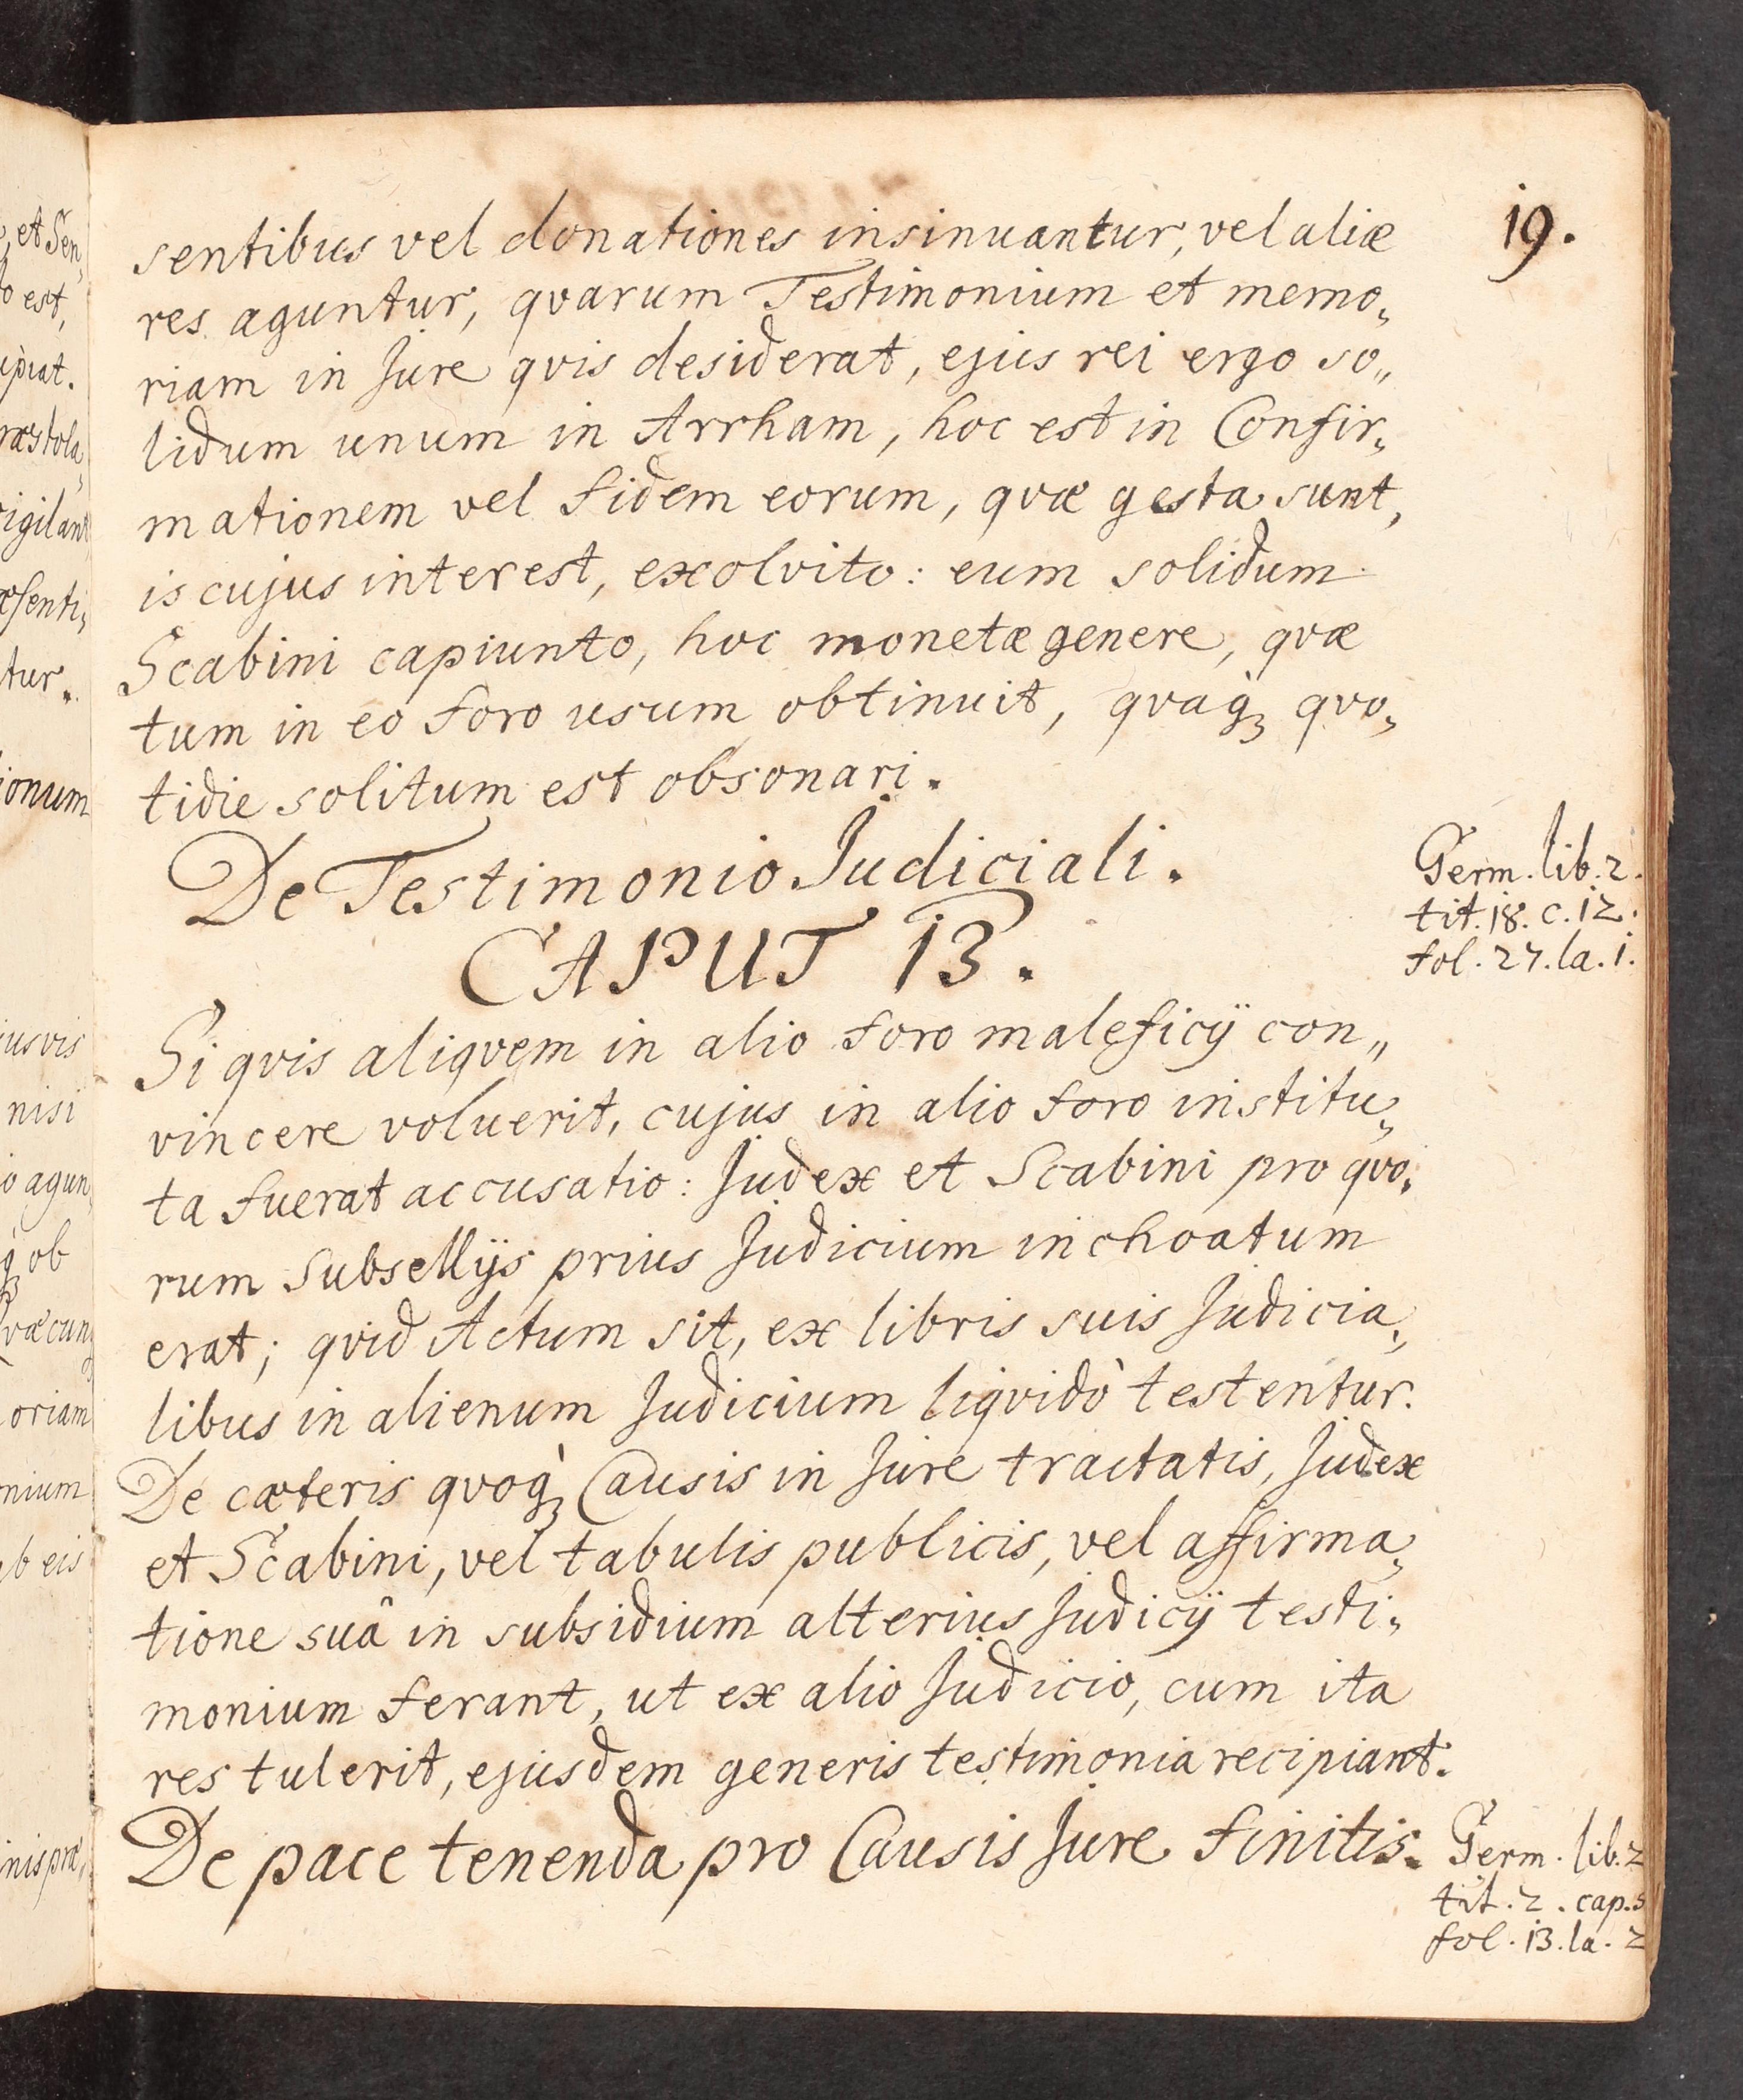 19.
sentibus vel donationes insinuantur, vel aliæ
res aguntur, qvarum Testimonium et memo„
riam in Jure qvis desiderat, ejus rei ergo so„
lidum unum in Arrham, hoc est in Confir„
mationem vel fidem eorum, qvæ gesta sunt,
is cujus interest, exolvito: eum solidum
Scabini capiunto, hoc monetæ genere, qvæ
tum in eo foro usum obtinuit, qvaq̀ꝫ qvo„
tidie solitum est obsonari.
De Testimonio Judiciali.
CAPUT 13.
Germ. lib. 2.
tit. 18. c. 12.
fol. 27. la. 1.
Si qvis aliqvem in alio foro maleficÿ con„
vincere voluerit, cujus in alio foro institu„
ta fuerat accusatio: Judex et Scabini pro qvo„
rum subsellÿs prius Judicium inchoatum
erat; qvid Actum sit, ex libris suis Judicia„
libus in alienum Judicium liqvidò testentur.
De cæteris qvoq̀ꝫ Causis in Jure tractatis, Judex
et Scabini, vel tabulis publicis, vel affirma„
tione suâ in subsidium alterius Judicÿ testi„
monium ferant, ut ex alio Judicio, cum ita
res tulerit, ejusdem generis testimonia recipiant.
De pace tenenda pro Causis Jure finitis.
Germ. lib. 2
tit. 2. cap. 5
fol. 13. la. 2